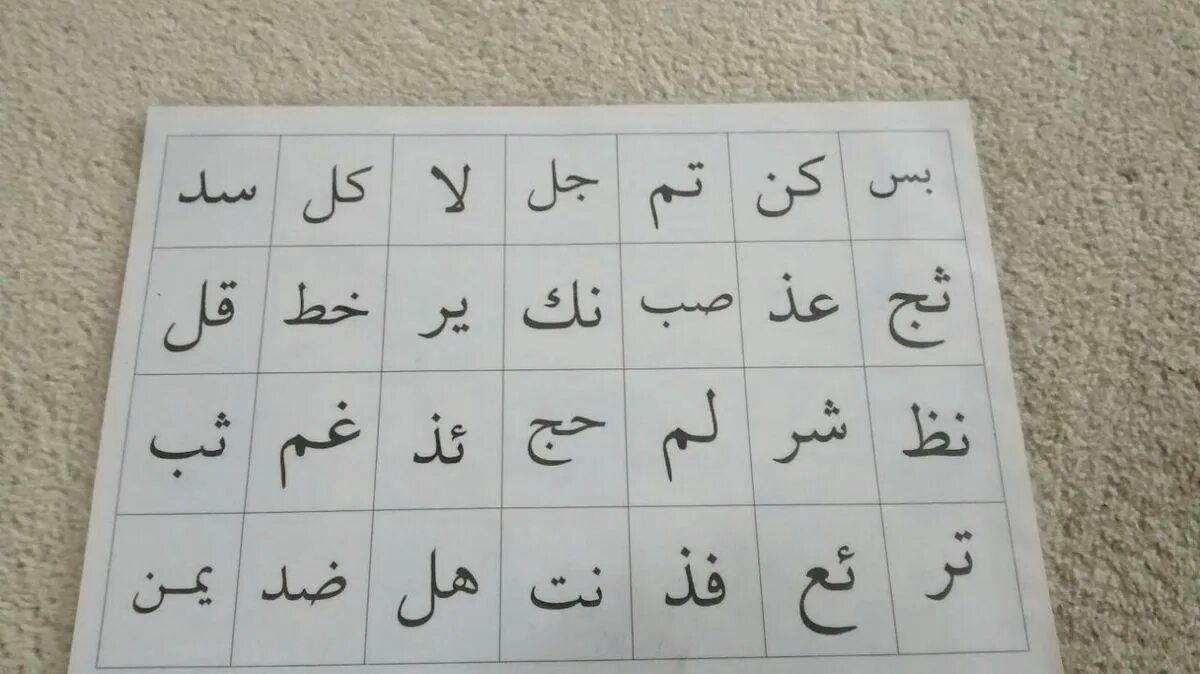 بس كن تم جل لا كل سد
ثج عذ صب نك ير خط قل
نظ شر لم حج ئذ غم ثب
تر ئع فذ نت هل ضد يمن